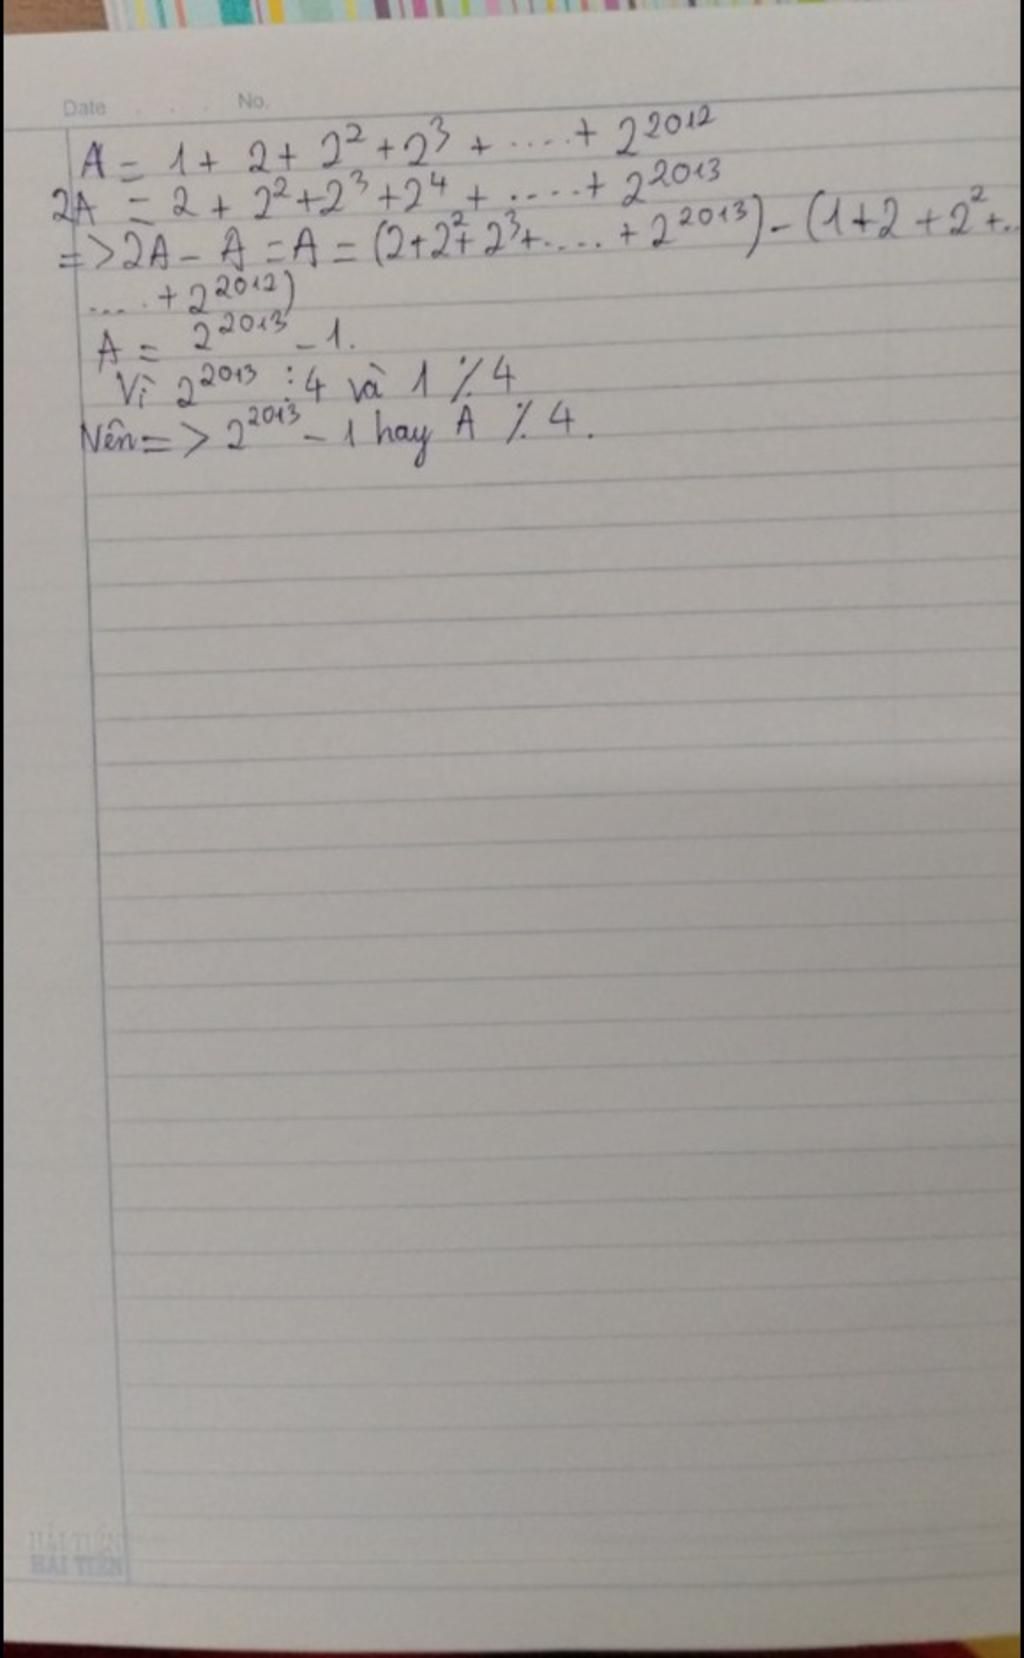 Date . . . No.
A = 1 + 2 + 2² + 2³ + ..... + 2²⁰¹²
2A = 2 + 2² + 2³ + 2⁴ + ..... + 2²⁰¹³
=> 2A - A = A = (2 + 2² + 2³ + ..... + 2²⁰¹³) - (1 + 2 + 2² + ..
..... + 2²⁰¹²)
A = 2²⁰¹³ - 1.
Vì 2²⁰¹³ ⋮ 4 và 1 ⋮̸ 4
Nên => 2²⁰¹³ - 1 hay A ⋮̸ 4.
HẢI TIẾN
HẢI TIẾN